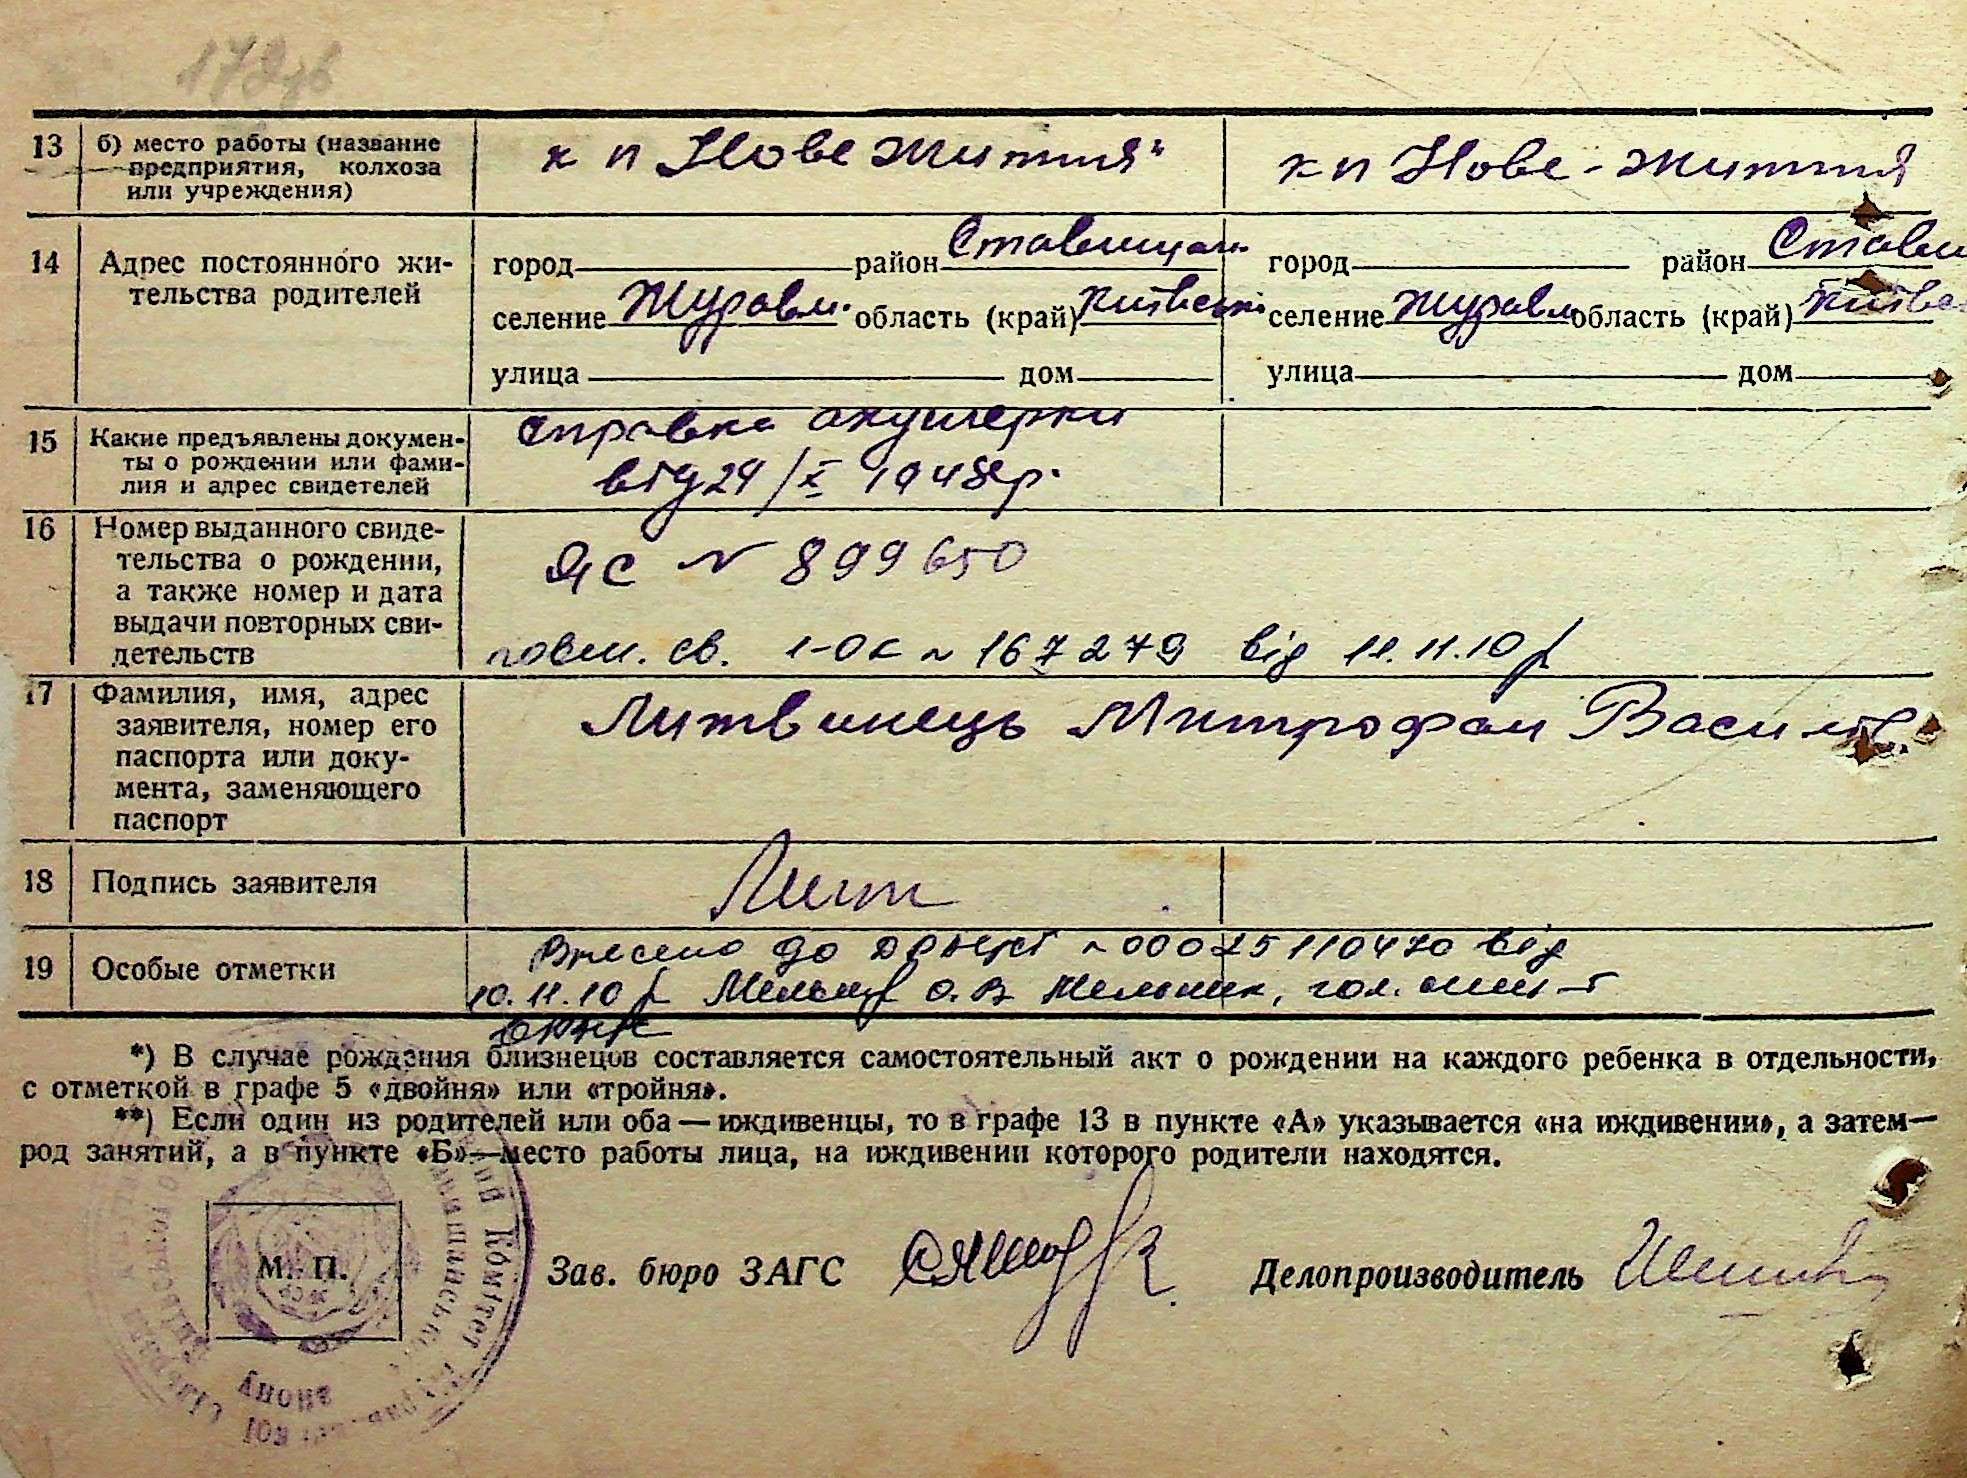 13 б) место работы (название
предприятия, колхоза
или учреждения)
к п Нове життя"
к п Нове - життя
14 Адрес постоянного жи-
тельства родителей
город район Ставищан.
селение Журавл. область (край) Київські
улица дом
город район Стави
селение Журавл область (край) Київс
улица дом
15 Какие предъявлены докумен-
ты о рождении или фами-
лия и адрес свидетелей
Справка акушерки
від 24/X 1948 р.
16 Номер выданного свиде-
тельства о рождении,
а также номер и дата
выдачи повторных сви-
детельств
ЯС N 899650
повт. св. 1-ОК N 167279 від 11.11.10 р
17 Фамилия, имя, адрес
заявителя, номер его
паспорта или доку-
мента, заменяющего
паспорт
Литвинець Митрофан Василів.
18 Подпись заявителя
Лит
19 Особые отметки
Внесено до ДРАЦС N 00025110470 від
10.11.10 р О.В Мельник, гол. спец-т
*) В случае рождения близнецов составляется самостоятельный акт о рождении на каждого ребенка в отдельности,
с отметкой в графе 5 «двойня» или «тройня».
**) Если один из родителей или оба — иждивенцы, то в графе 13 в пункте «А» указывается «на иждивении», а затем—
род занятий, а в пункте «Б»—место работы лица, на иждивении которого родители находятся.
М. П.
Зав. бюро ЗАГС
Делопроизводитель
Комітет